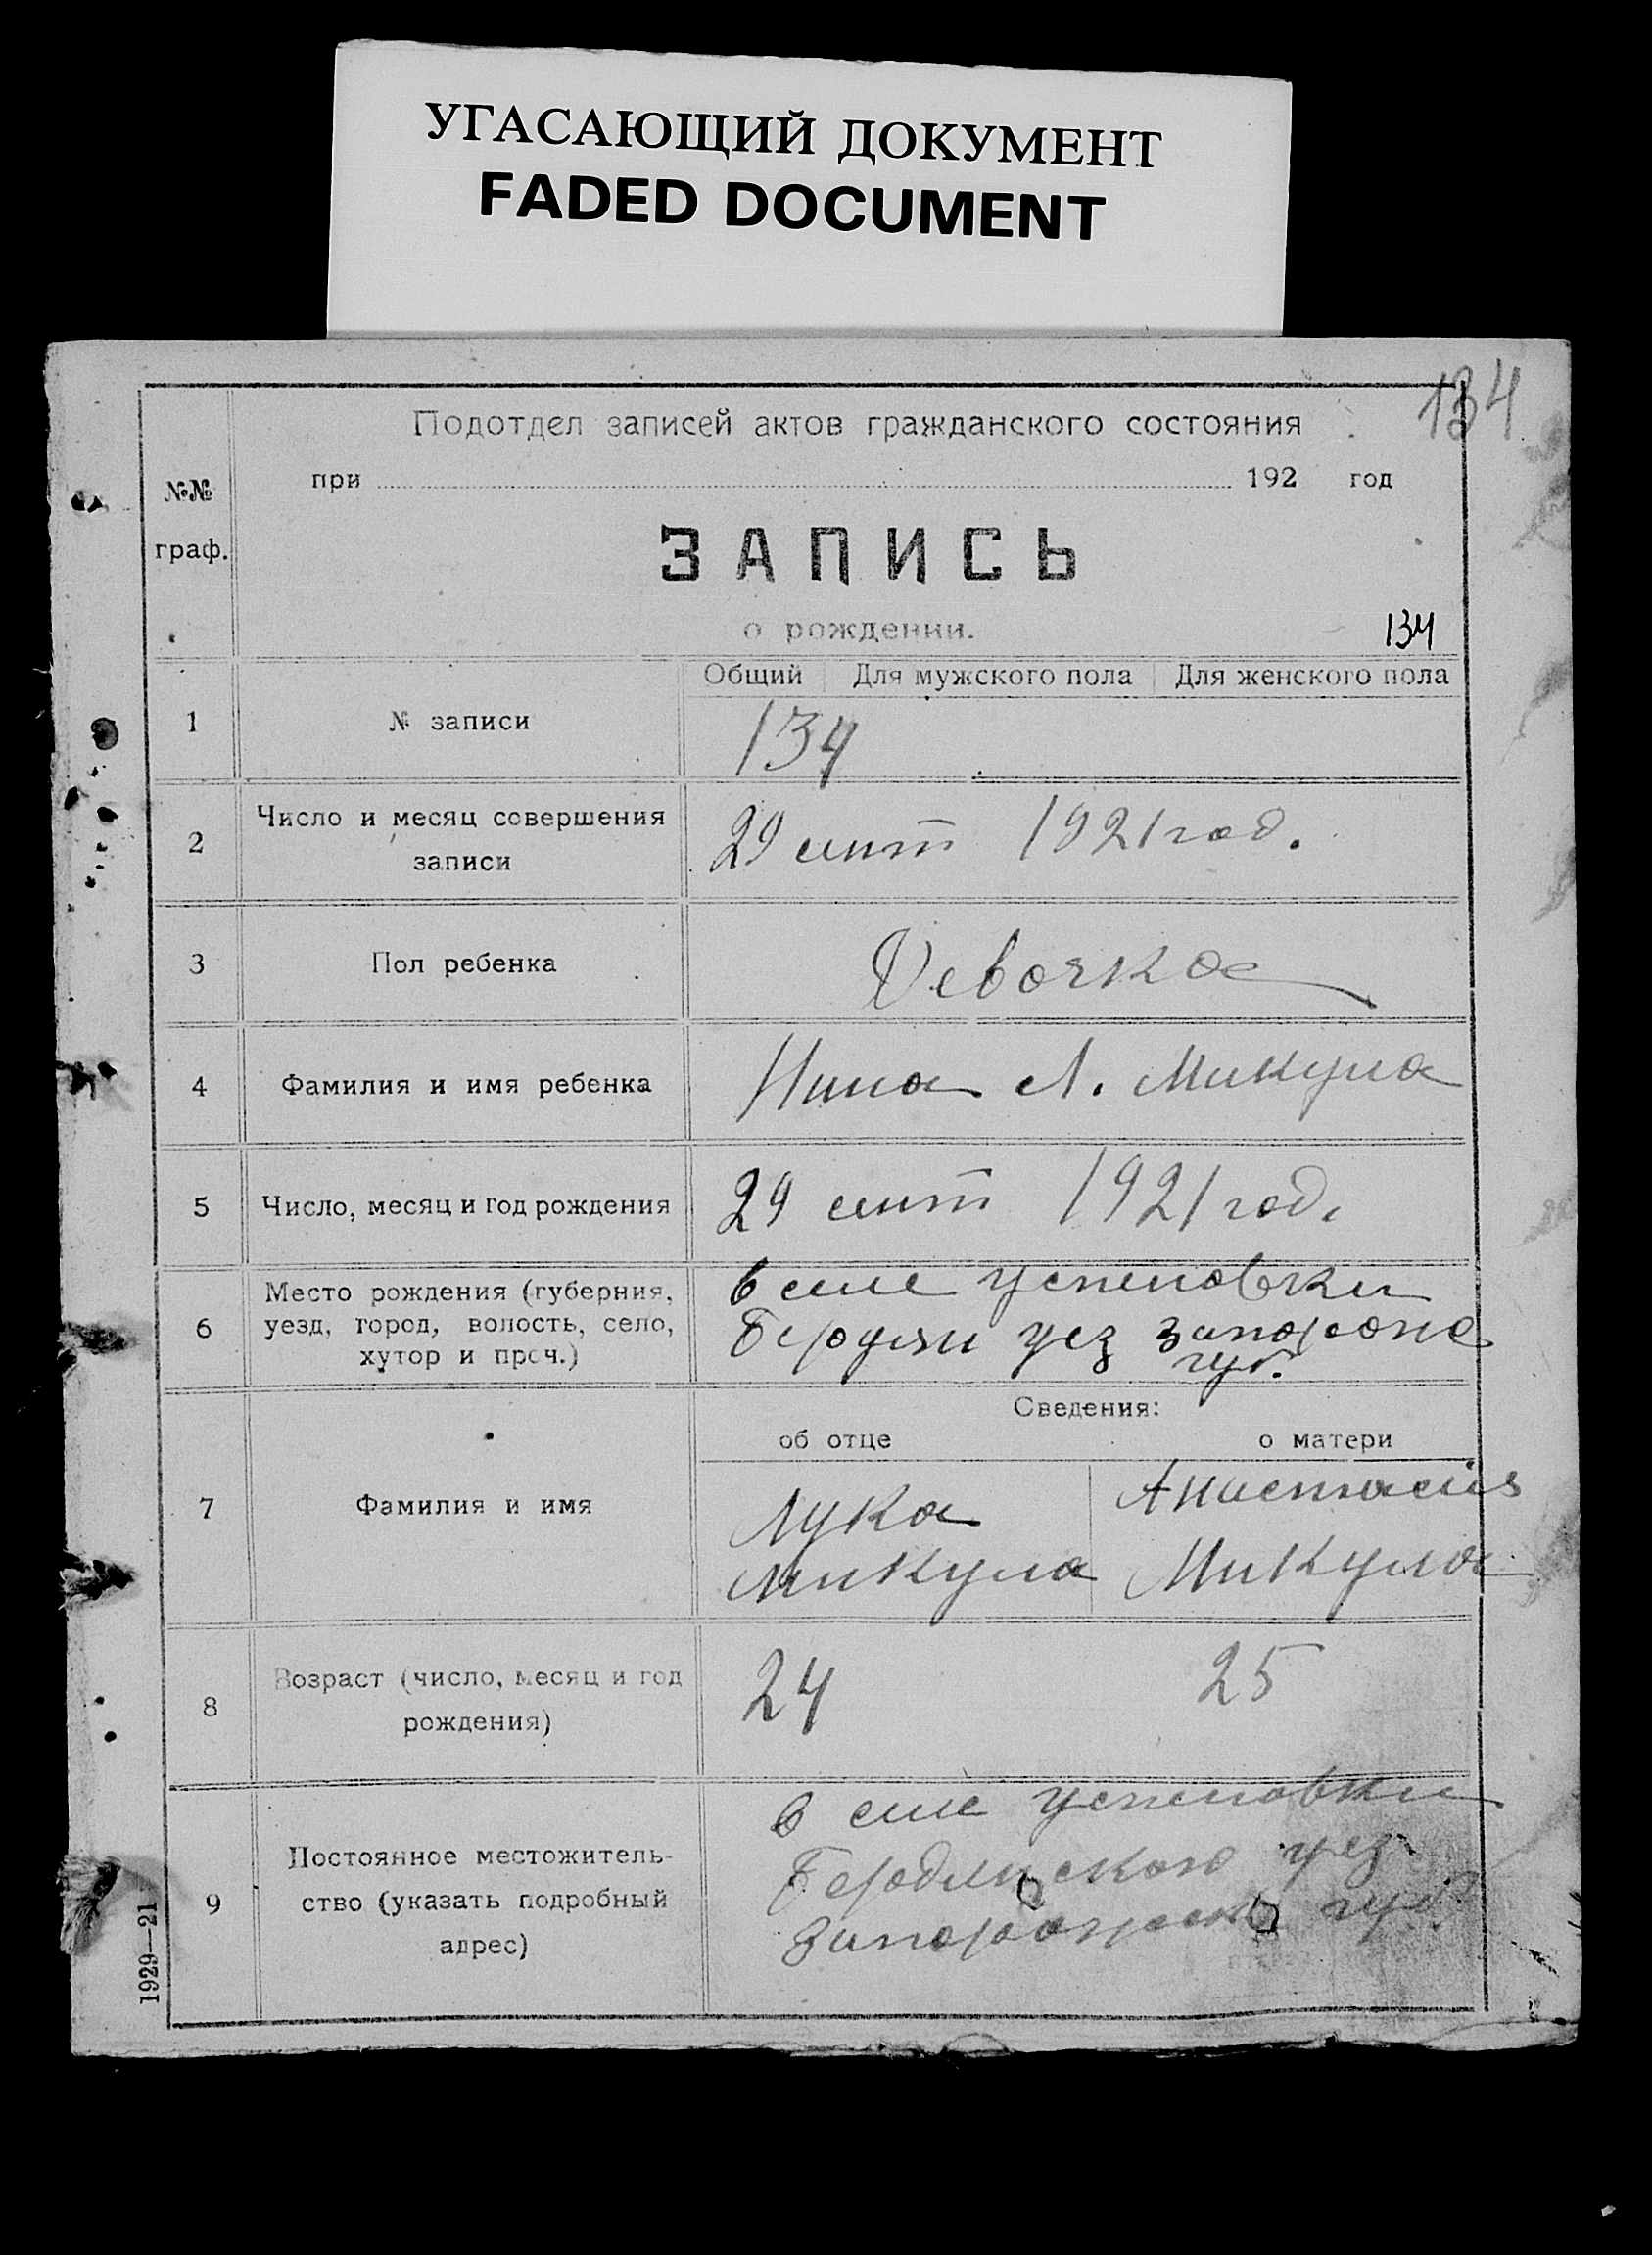 УГАСАЮЩИЙ ДОКУМЕНТ
FADED DOCUMENT
134
Подотдел записей актов гражданского состояния
при 192 год
№№
граф.
ЗАПИСЬ
о рождении.
134
Общий Для мужского пола Для женского пола
1 № записи 134
2 Число и месяц совершения
записи
29 сент 1921 год.
3 Пол ребенка Девочка
4 Фамилия и имя ребенка Нина Л. Микула
5 Число, месяц и год рождения 29 сент 1921 год.
6 Место рождения (губерния,
уезд, город, волость, село,
хутор и проч.)
в селе Успеновки
Бердян уез запорож
губ.
Сведения:
об отце о матери
7 Фамилия и имя
Лука
Микула
Анастасия
Микула
8 Возраст (число, месяц и год
рождения)
24 25
9 Постоянное местожитель-
ство (указать подробный
адрес)
в селе Успеновки
Бердянского уез
губ.
1929—21